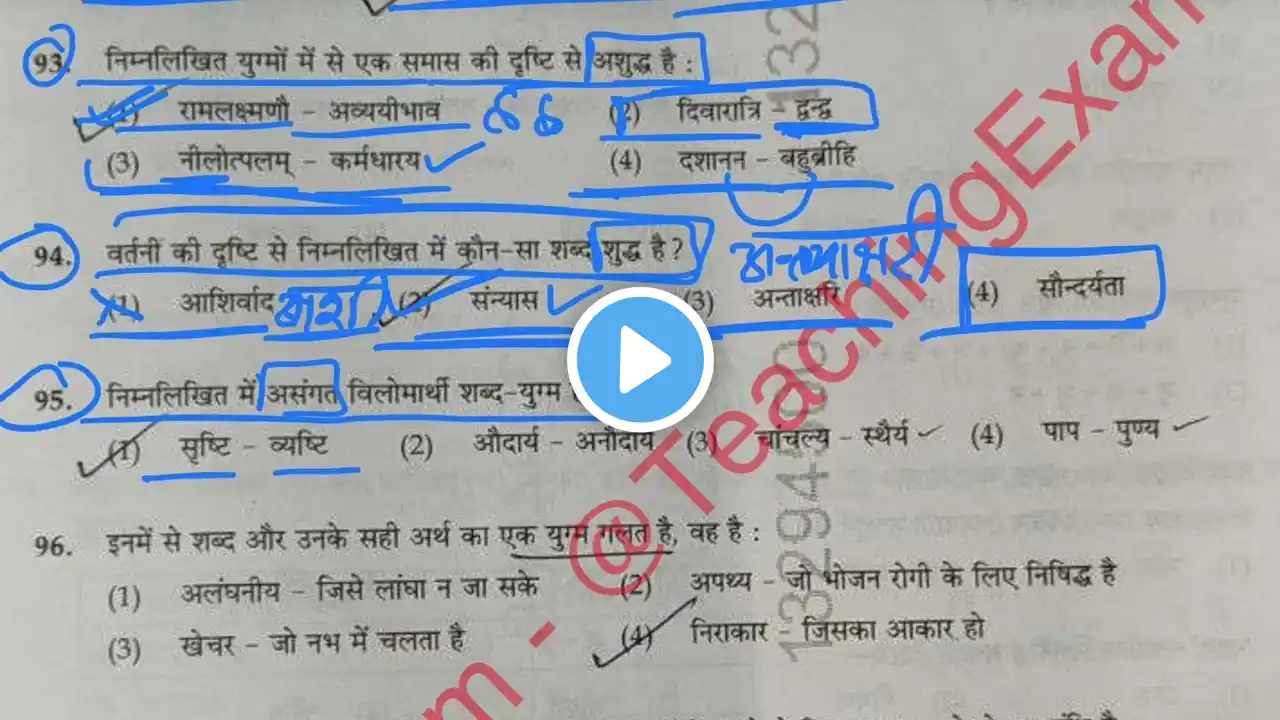 93. निम्नलिखित युग्मों में से एक समास की दृष्टि से अशुद्ध है :
(1) रामलक्ष्मणौ – अव्ययीभाव (2) दिवारात्रि – द्वन्द्व
(3) नीलोत्पलम् – कर्मधारय (4) दशानन – बहुब्रीहि
94. वर्तनी की दृष्टि से निम्नलिखित में कौन-सा शब्द शुद्ध है ?
अन्त्याक्षरी
(1) आशिर्वाद (2) संन्यास (3) अन्ताक्षरि (4) सौन्दर्यता
95. निम्नलिखित में असंगत विलोमार्थी शब्द-युग्म
(1) सृष्टि – व्यष्टि (2) औदार्य – अनौदार्य (3) चांचल्य – स्थैर्य (4) पाप – पुण्य
96. इनमें से शब्द और उनके सही अर्थ का एक युग्म गलत है, वह है :
(1) अलंघनीय – जिसे लांघा न जा सके (2) अपथ्य – जो भोजन रोगी के लिए निषिद्ध है
(3) खेचर – जो नभ में चलता है (4) निराकार – जिसका आकार हो
@TeachingExam